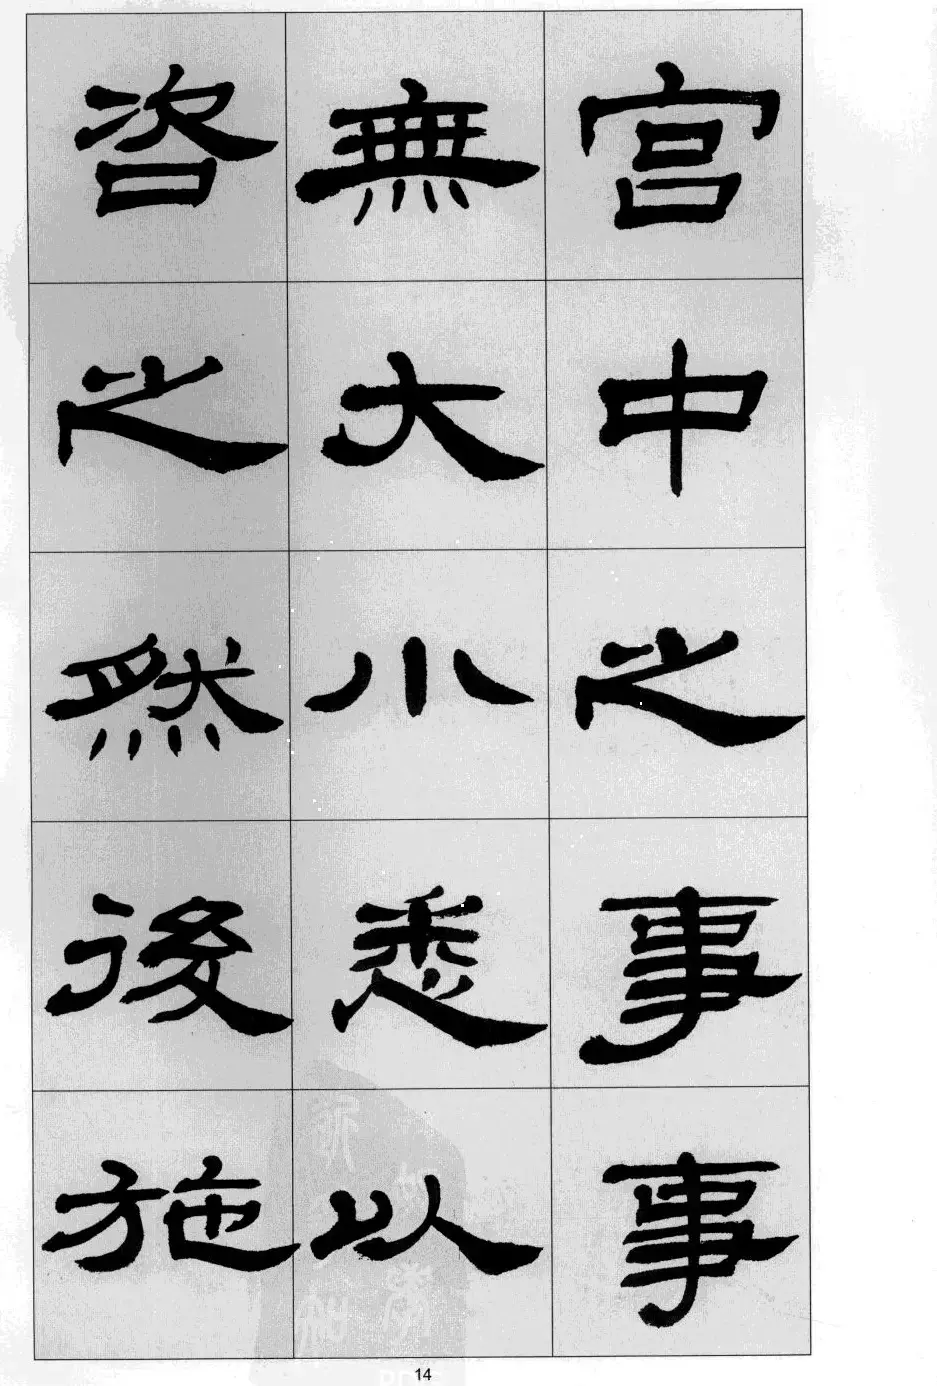 宮中之事事
無大小悉以
咨之然後施
14